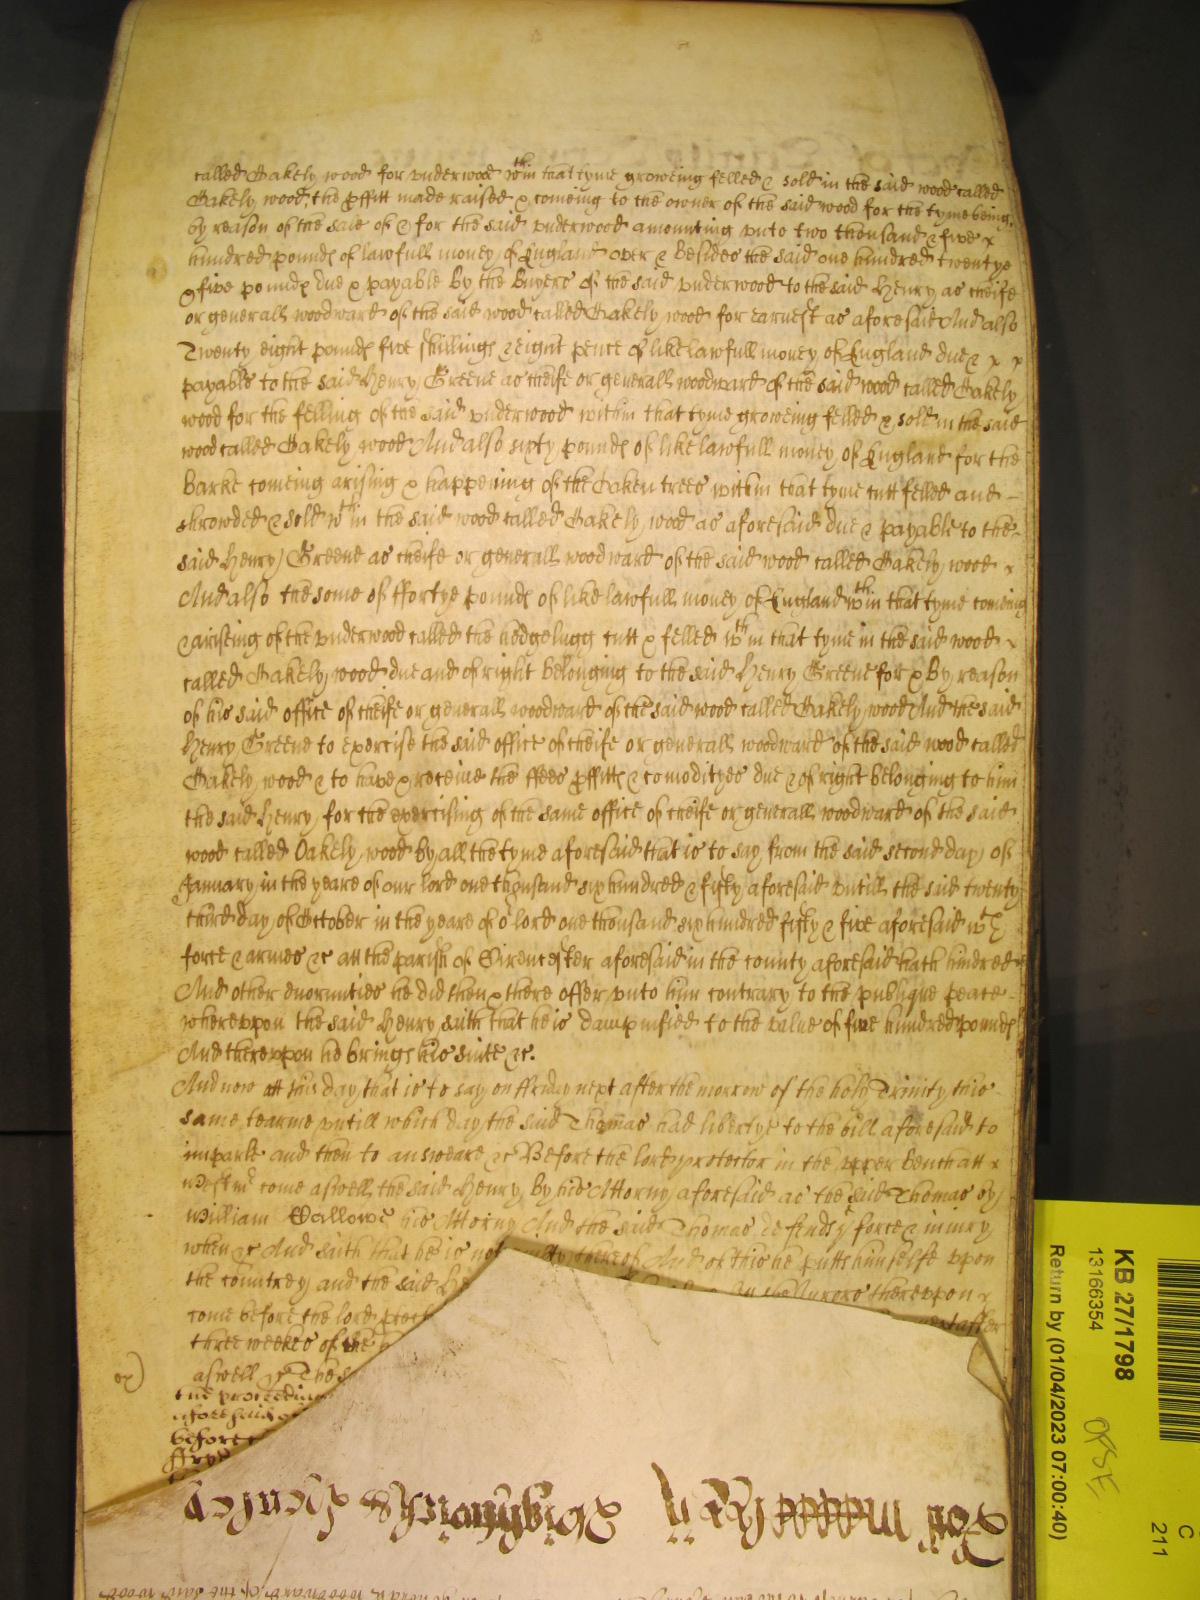 called Oakely wood for underwood wth in that tyme groweing felled & sold in the said wood called
Oakely wood, the pffitt made raised & comeing to the owner of the said wood for the tyme being,
by reason of the sale of & for the said underwood amounting unto two thousand & five x
hundred pounds of lawfull money of England over & besides the said one hundred twentye
& five pounds due & payable by the buyers of the said underwood to the said Henry as cheife
or generall woodward of the said wood called Oakely wood for earnest as aforesaid And also
Twenty eight pounds five shillings & eight pence of like lawfull money of England due & x x
payable to the said Henry Greene as cheife or generall woodward of the said wood called Oakely
wood for the felling of the said underwood within that tyme groweing felled & sold in the said
wood called Oakely wood And also sixty pounds of like lawfull money of England for the
Barke comeing arising & happening of the Oaken trees within that tyme cutt felled and -
shrowded & sold wth in the said wood called Oakely wood as aforesaid due & payable to the
said Henry Greene as cheife or generall woodward of the said wood called Oakely wood x
And also the some of ffortye pounds of like lawfull money of England wth in that tyme comeing
& ariseing of the underwood called the hedgelugg cutt & felled wth in that tyme in the said wood x
called Oakely wood due and of right belonging to the said Henry Greene for & by reason
of his said office of cheife or generall woodward of the said wood called Oakely wood And the said
Henry Greene to exercise the said office of cheife or generall woodward of the said wood called
Oakely wood & to have & receive the ffees pffitts & comodityes due & of right belonging to him
the said Henry for the exercising of the same office of cheife or generall woodward of the said
wood called Oakely wood by all the tyme aforesaid that is to say from the said second day of
January in the yeare of our lord one thousand six hundred & fifty aforesaid untill the said twenty
third day of October in the yeare of or lord one thousand six hundred fifty & five aforesaid wth
force & armes &c att the parish of Cirencester aforesaid in the county aforesaid hath hindred
And other enormities he did then & there offer unto him contrary to the publique peace -
whereupon the said Henry saith that he is dampnified to the value of five hundred pounds
And thereupon he brings his suite &c.
And now att this day that is to say on ffriday next after the morrow of the holy Trinity this
same tearme untill which day the said Thomas had libertye to the bill aforesaid to
imparle and then to answeare &c Before the lord protector in the upper bench att x
Westmr come aswell the said Henry by his Attorny aforesaid as the said Thomas by
William Gallowe his Attorny And the said Thomas defends ye force & iniury
when &c And saith that he is not thereof And of this he putts himselfe upon
the countrey and the said He the Jurors thereupon x
come before the lord next after
three weekes of the
aswell &c The
the proceeding
aforesaid
before
KB 27/1798
13166354
Return by (01/04/2023 07:00:40)
C
211